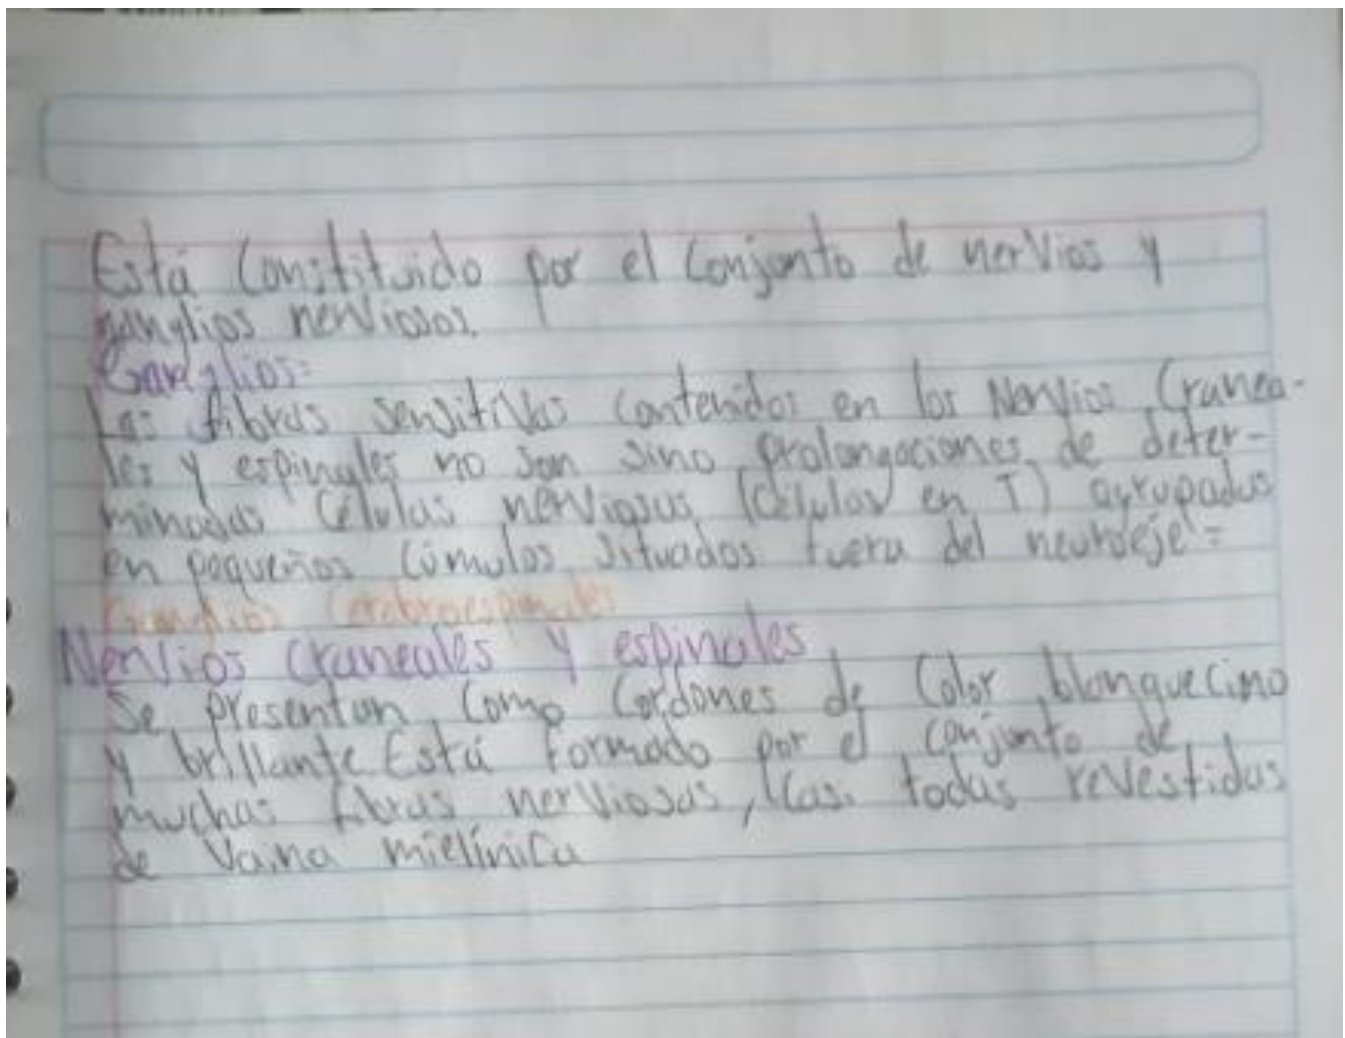 Está Constituido por el Conjunto de nervios y
ganglios nerviosos.
Ganglios=
Las fibras sensitivas contenidos en los Nervios Cranea-
les y espinales no son sino prolongaciones de deter-
minadas Células nerviosas (Células en T) agrupadas
en pequeños Cúmulos situados fuera del neuroeje=
Ganglios Cerebroespinales
Nervios Craneales y espinales
Se presentan como Cordones de Color blanquecino
y brillante. Está Formado por el conjunto de
muchas fibras nerviosas, Casi todas revestidas
de Vaina mielínica